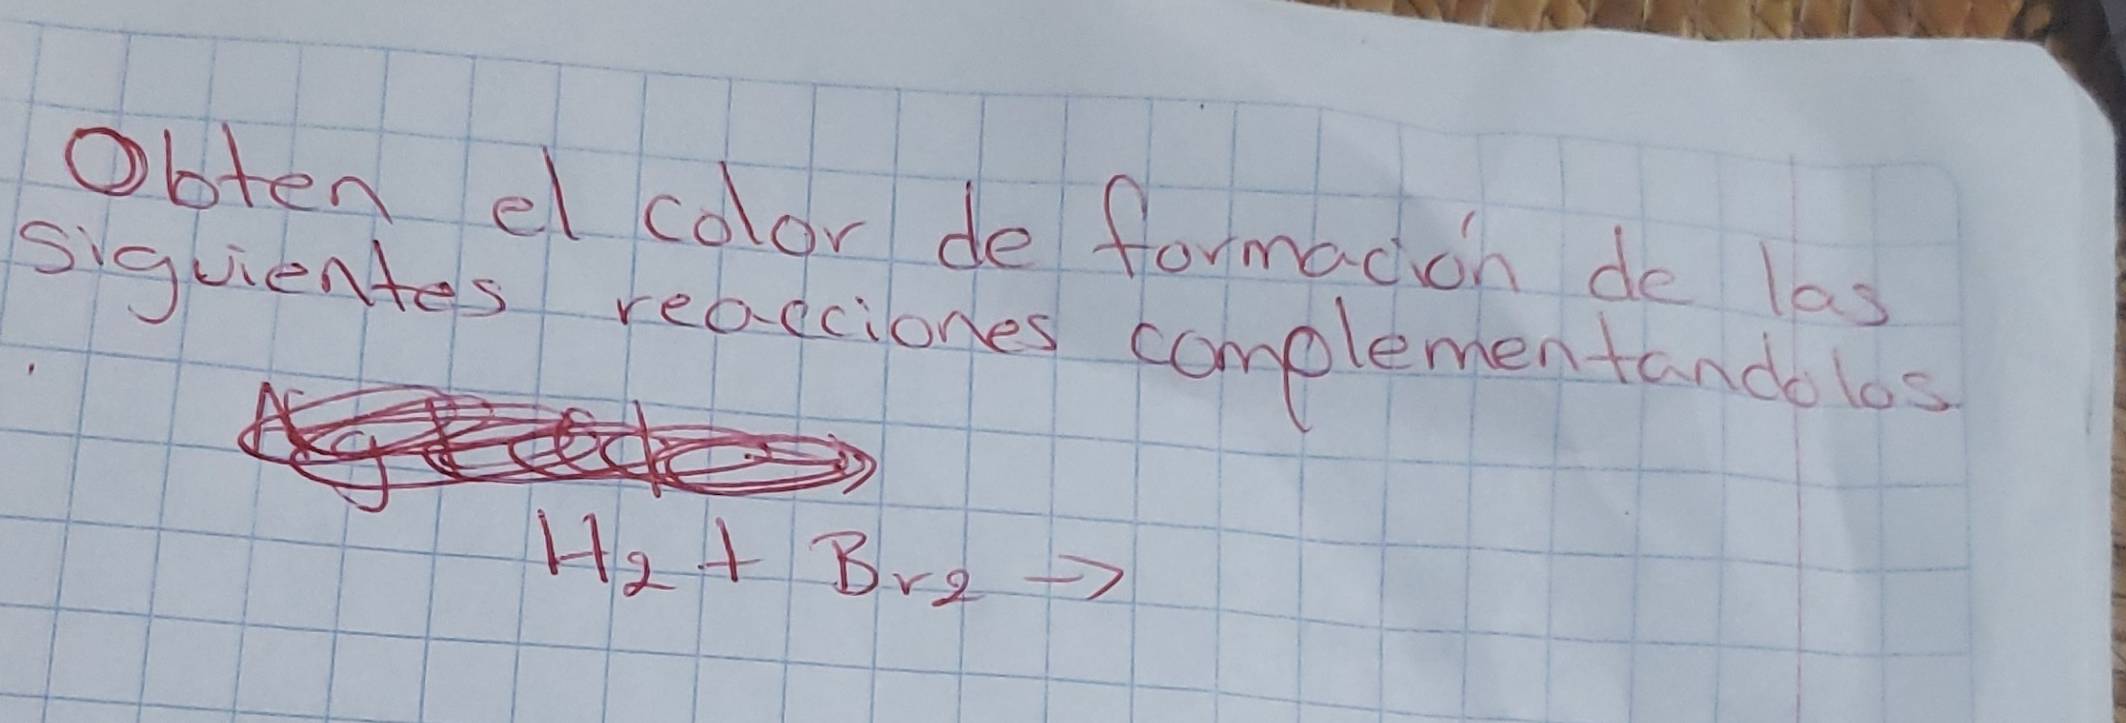 Obten el color de formación de las
siguientes reacciones complementandolos
H₂ + Br₂ →